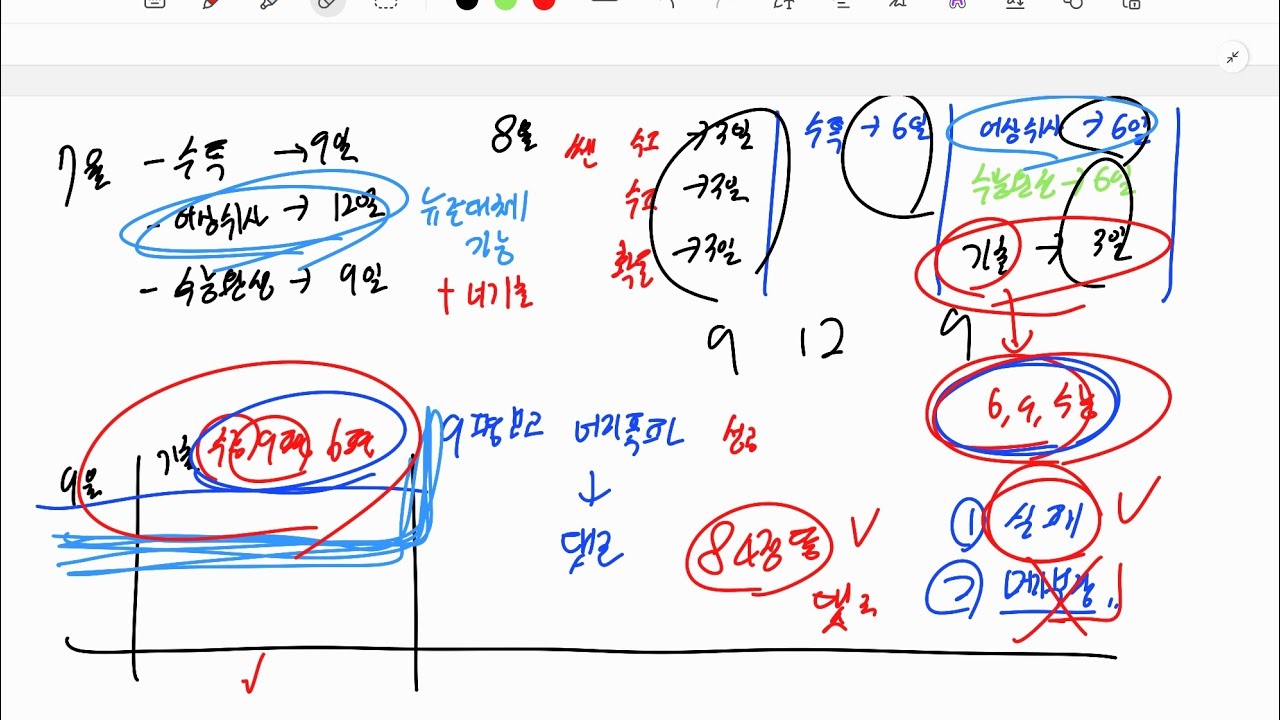 7월 - 수특 → 9일
- 어상쉬사 → 12일
- 수능완성 → 9일
뉴런대체
가능
+ 너기출
8월
쎈 수1 → 3일
수2 → 3일
확통 → 3일
수특 → 6일
어상쉬사 → 6일
수능완성 → 6일
기출 → 3일
9 12 9
6, 9, 수능
9월
기출 수능 9평 6평
9평보고 머리폭파
↓
댓글
84점
댓글
① 실패 ✓
②